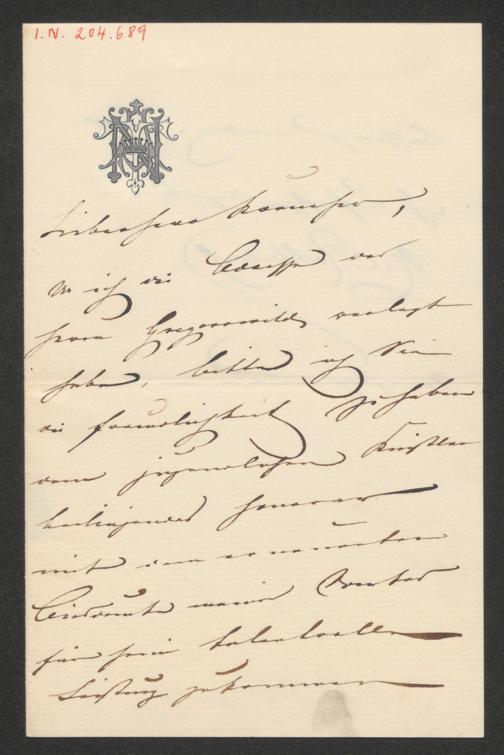 I.N. 204.689
Lieber Herr Kremser,
da ich die Adresse des
Herrn Gregorowitsch verlegt
habe, bitte ich Sie
die Freundlichkeit zu haben
dem jugendlichen Künstler
beiliegendes Honorar
mit dem erneuerten
Ausdrucke meines Dankes
für seine talentvolle
Leistung zukommen